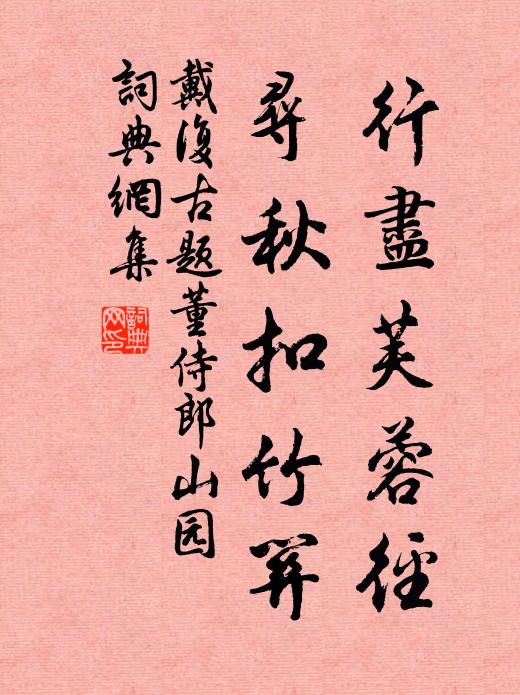 行盡芙蓉徑
尋秋扣竹關
戴復古题董侍郎山园
詞典網集
詞典
网印